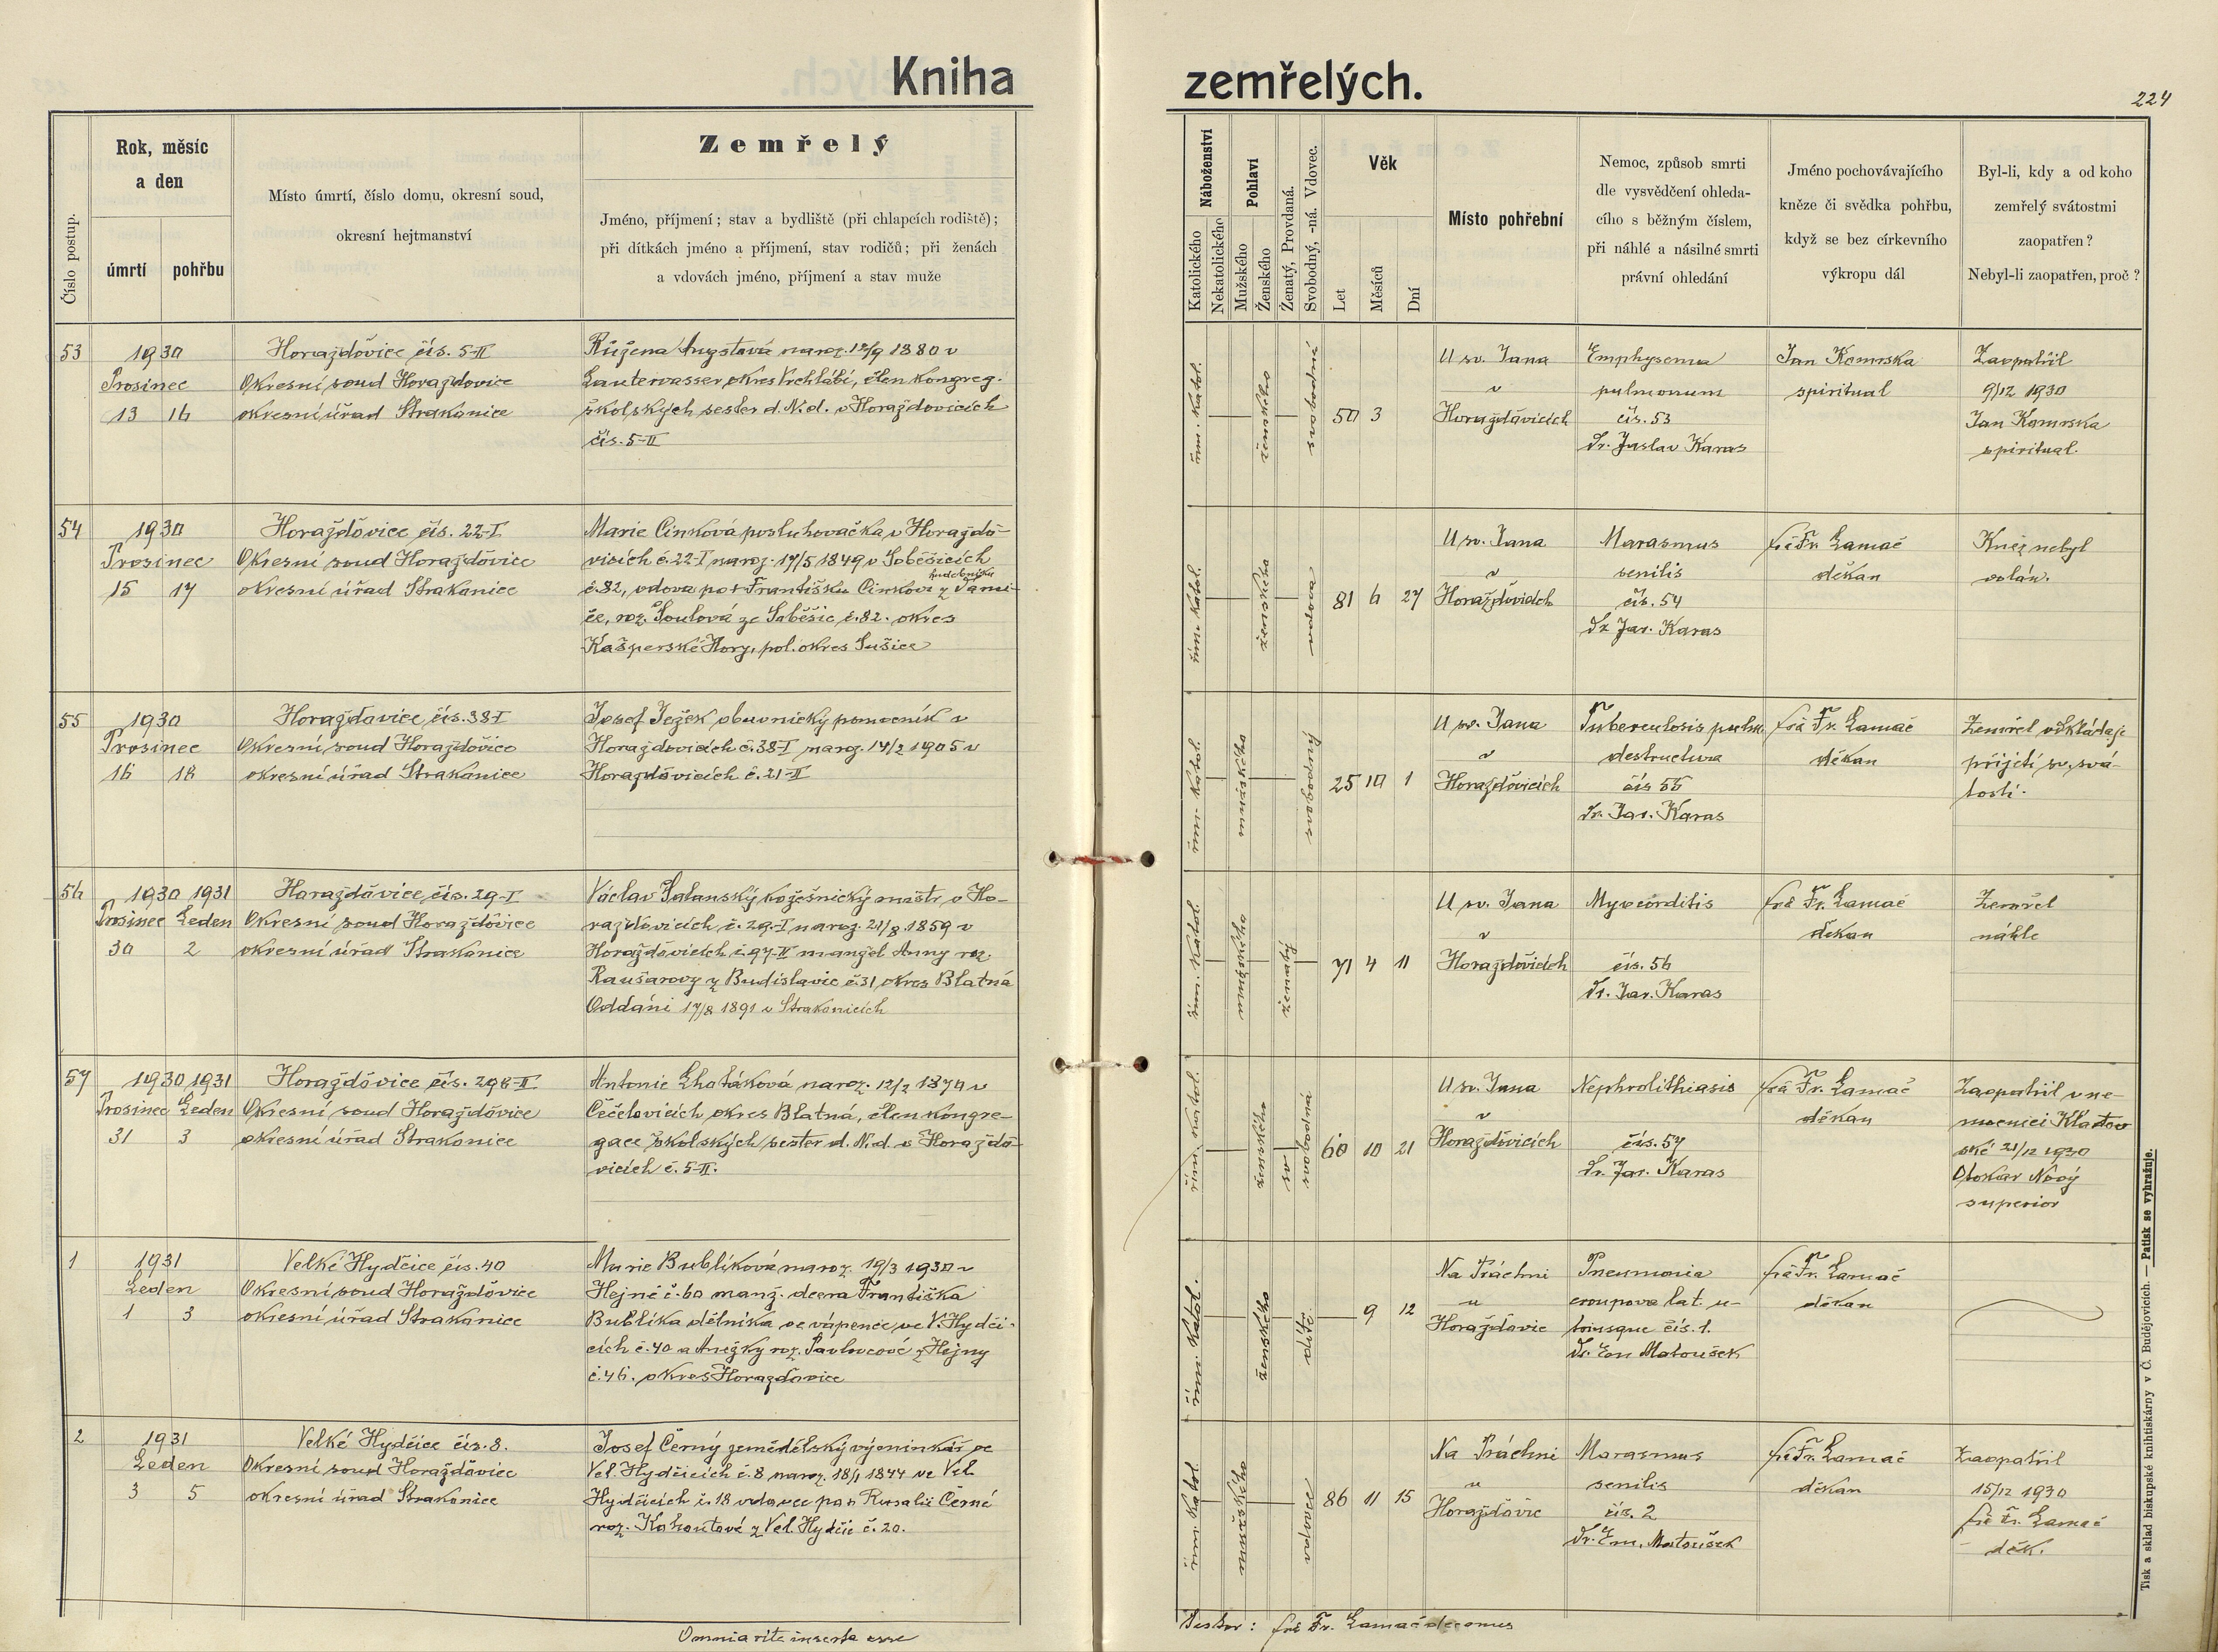 Kniha zemřelých.
224
Číslo postup.
Rok, měsíc
a den
úmrtí
pohřbu
Místo úmrtí, číslo domu, okresní soud,
okresní hejtmanství
Zemřelý
Jméno, příjmení; stav a bydliště (při chlapcích rodiště);
při dítkách jméno a příjmení, stav rodičů; při ženách
a vdovách jméno, příjmení a stav muže
Náboženství
Katolického
Nekatolického
Pohlaví
Mužského
Ženského
Ženatý, Provdaná.
Svobodný, -ná. Vdovec.
Věk
Let
Měsíců
Dní
Místo pohřební
Nemoc, způsob smrti
dle vysvědčení ohleda-
cího s běžným číslem,
při náhlé a násilné smrti
právní ohledání
Jméno pochovávajícího
kněze či svědka pohřbu,
když se bez církevního
výkropu dál
Byl-li, kdy a od koho
zemřelý svátostmi
zaopatřen?
Nebyl-li zaopatřen, proč?
53
1930
Prosinec
13 16
Horažďovice čís. 5-II
Okresní soud Horažďovice
okresní úřad Strakonice
Růžena Augstová naroz. 12/9 1880 v
Lauterwasser, okres Vrchlabí, člen kongreg.
školských sester d. N. d. v Horažďovicích
čís. 5-II
řím. katol.
ženského
svobodná
50 3
U sv. Jana
v
Horažďovicích
Emphysema
pulmonum
čís. 53
Dr. Jaslav Karas
Jan Kamrska
spiritual
Zaopatřil
9/12 1930
Jan Kamrska
spiritual.
54
1930
Prosinec
15 17
Horažďovice čís. 22-I
Okresní soud Horažďovice
okresní úřad Strakonice
Marie Cinková posluhovačka v Horažďo-
vicích č. 22-I naroz. 17/5 1849 v Soběšicích
hudebníka
č. 82, vdova po † Františku Cinkovi z
če, roz. Soulová ze Soběšic č. 82. okres
Kašperské Hory, pol. okres Sušice
řím. katol.
ženského
vdova
81 6 27
U sv. Jana
v
Horažďovicích
Marasmus
senilis
čís. 54
Dr. Jar. Karas
frá Fr. Lamač
děkan
Kněz nebyl
volán.
55
1930
Prosinec
16 18
Horažďovice, čís. 38-I
Okresní soud Horažďovice
okresní úřad Strakonice
Josef Ježek obuvnický pomocník v
Horažďovicích č. 38-I naroz. 14/2 1905 v
Horažďovicích č. 21-II
řím. katol.
mužského
svobodný
25 10 1
U sv. Jana
v
Horažďovicích
Tuberculosis pulm.
destructiva
čís 55
Dr. Jar. Karas
frá Fr. Lamač
děkan
Zemřel odkládaje
přijetí sv. svá-
tostí.
56
1930 1931
Prosinec Leden
30 2
Horažďovice, čís. 29-I
Okresní soud Horažďovice
okresní úřad Strakonice
Václav Šalanský kožešnický mistr v Ho-
ražďovicích č. 29-I naroz. 21/8 1859 v
Horažďovicích č. 97-II manžel Anny roz.
Raušarovy z Budislavic č. 31, okres Blatná
Oddáni 17/8 1891 v Strakonicích
řím. katol.
mužského
ženatý
71 4 11
U sv. Jana
v
Horažďovicích
Myocarditis
čís. 56
Dr. Jar. Karas
frá Fr. Lamač
děkan
Zemřel
náhle
57
1930 1931
Prosinec Leden
31 3
Horažďovice čís. 298-II
Okresní soud Horažďovice
okresní úřad Strakonice
Antonie Lhotáková naroz. 12/2 1870 v
Čečelovicích okres Blatná, člen kongre-
gace školských sester d. N. d. v Horažďo-
vicích č. 5-II.
řím. katol.
ženského
sv
svobodná
60 10 21
U sv. Jana
v
Horažďovicích
Nephrolithiasis
čís. 57
Dr. Jar. Karas
frá Fr. Lamač
děkan
Zaopatřil v ne-
mocnici Klatov
ské 21/12 1930
Otokar Nový
superior
1
1931
Leden
1 3
Velké Hydčice čís. 40
Okresní soud Horažďovice
okresní úřad Strakonice
Marie Bublíková naroz. 19/3 1930 v
Hejné č. 60 manž. dcera Františka
Bublíka dělníka ve vápence ve V. Hydči-
cích č. 40 a Anežky roz. Pavlovcové z Hejny
č. 46. okres Horažďovice
řím. katol.
ženského
dítě
9 12
Na Práchni
u
Horažďovic
Pneumonia
crouposa lat. u-
triusque čís. 1.
Dr. Em Matoušek
frá Fr. Lamač
děkan
2
1931
Leden
3 5
Velké Hydčice čís. 8.
Okresní soud Horažďovice
okresní úřad Strakonice
Josef Černý zemědělský výminkář ve
Vel. Hydčicích č. 8 naroz. 18/1 1844 ve Vel.
Hydčicích č. 18 vdovec po † Rosalii Černé
roz. Kohoutové z Vel. Hydčic č. 20.
řím. katol.
mužského
vdovec
86 11 15
Na Práchni
u
Horažďovic
Marasmus
senilis
čís. 2
Dr. Em. Matoušek
frá Fr. Lamač
děkan
Zaopatřil
15/12 1930
frá Fr. Lamač
děk.
Omnia rite inserta esse
Testor: frá Fr. Lamač decanus
Tisk a sklad biskupské knihtiskárny v Č. Budějovicích. — Patisk se vyhražuje.